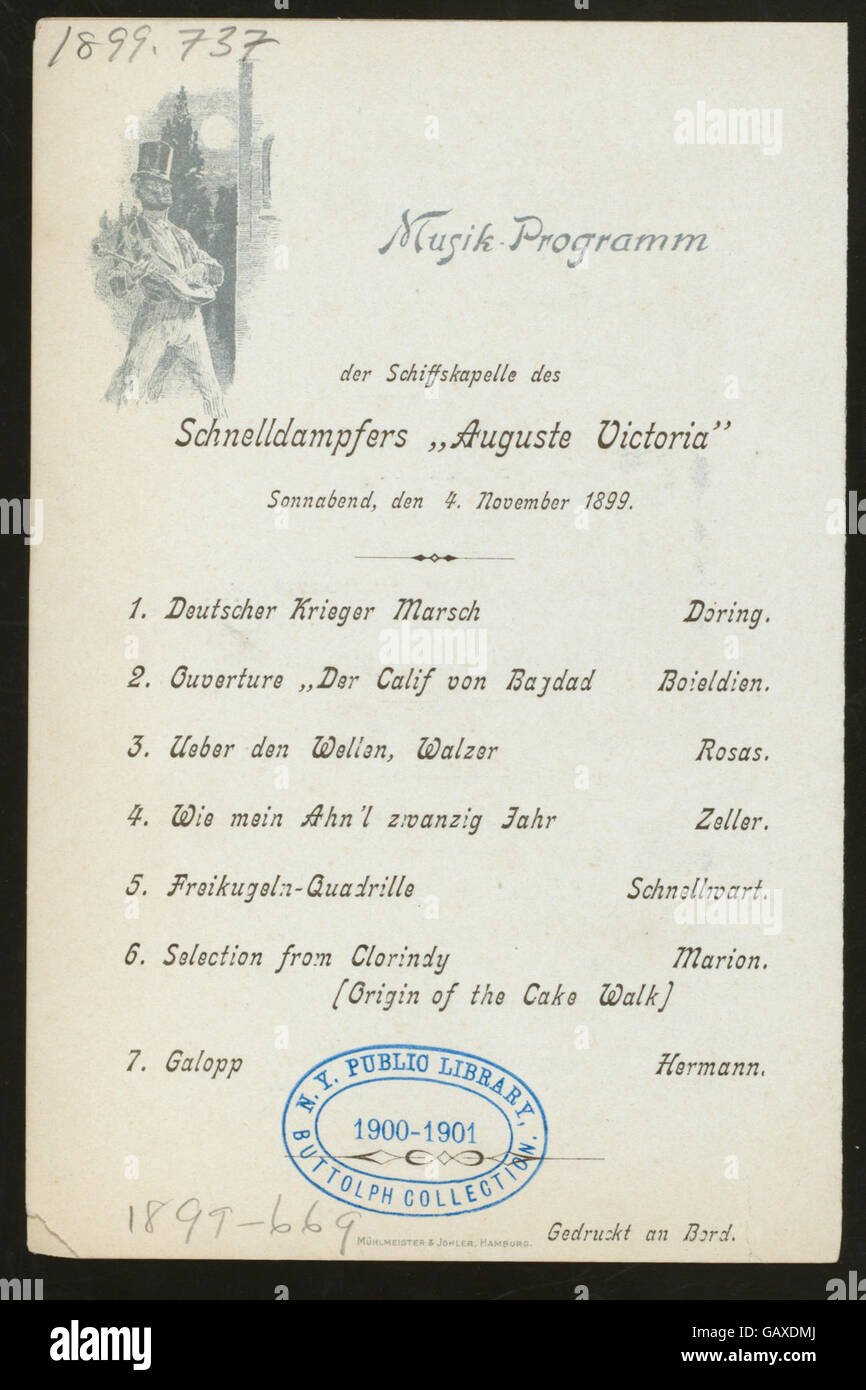 1899.737
alamy
Musik-Programm
der Schiffskapelle des
Schnelldampfers „Auguste Victoria”
Sonnabend, den 4. November 1899.
1. Deutscher Krieger Marsch Döring.
2. Ouverture „Der Calif von Bagdad Boieldien.
3. Ueber den Wellen, Walzer Rosas.
4. Wie mein Ahn'l zwanzig Jahr Zeller.
5. Freikugeln-Quadrille Schnellwart.
6. Selection from Clorindy Marion.
[Origin of the Cake Walk]
7. Galopp Hermann.
N. Y. PUBLIC LIBRARY,
1900-1901
BUTTOLPH COLLECTION.
1899-669
MÜHLMEISTER & JOHLER, HAMBURG.
Gedruckt an Bord.
alamy
Image ID: GAXDMJ
www.alamy.com